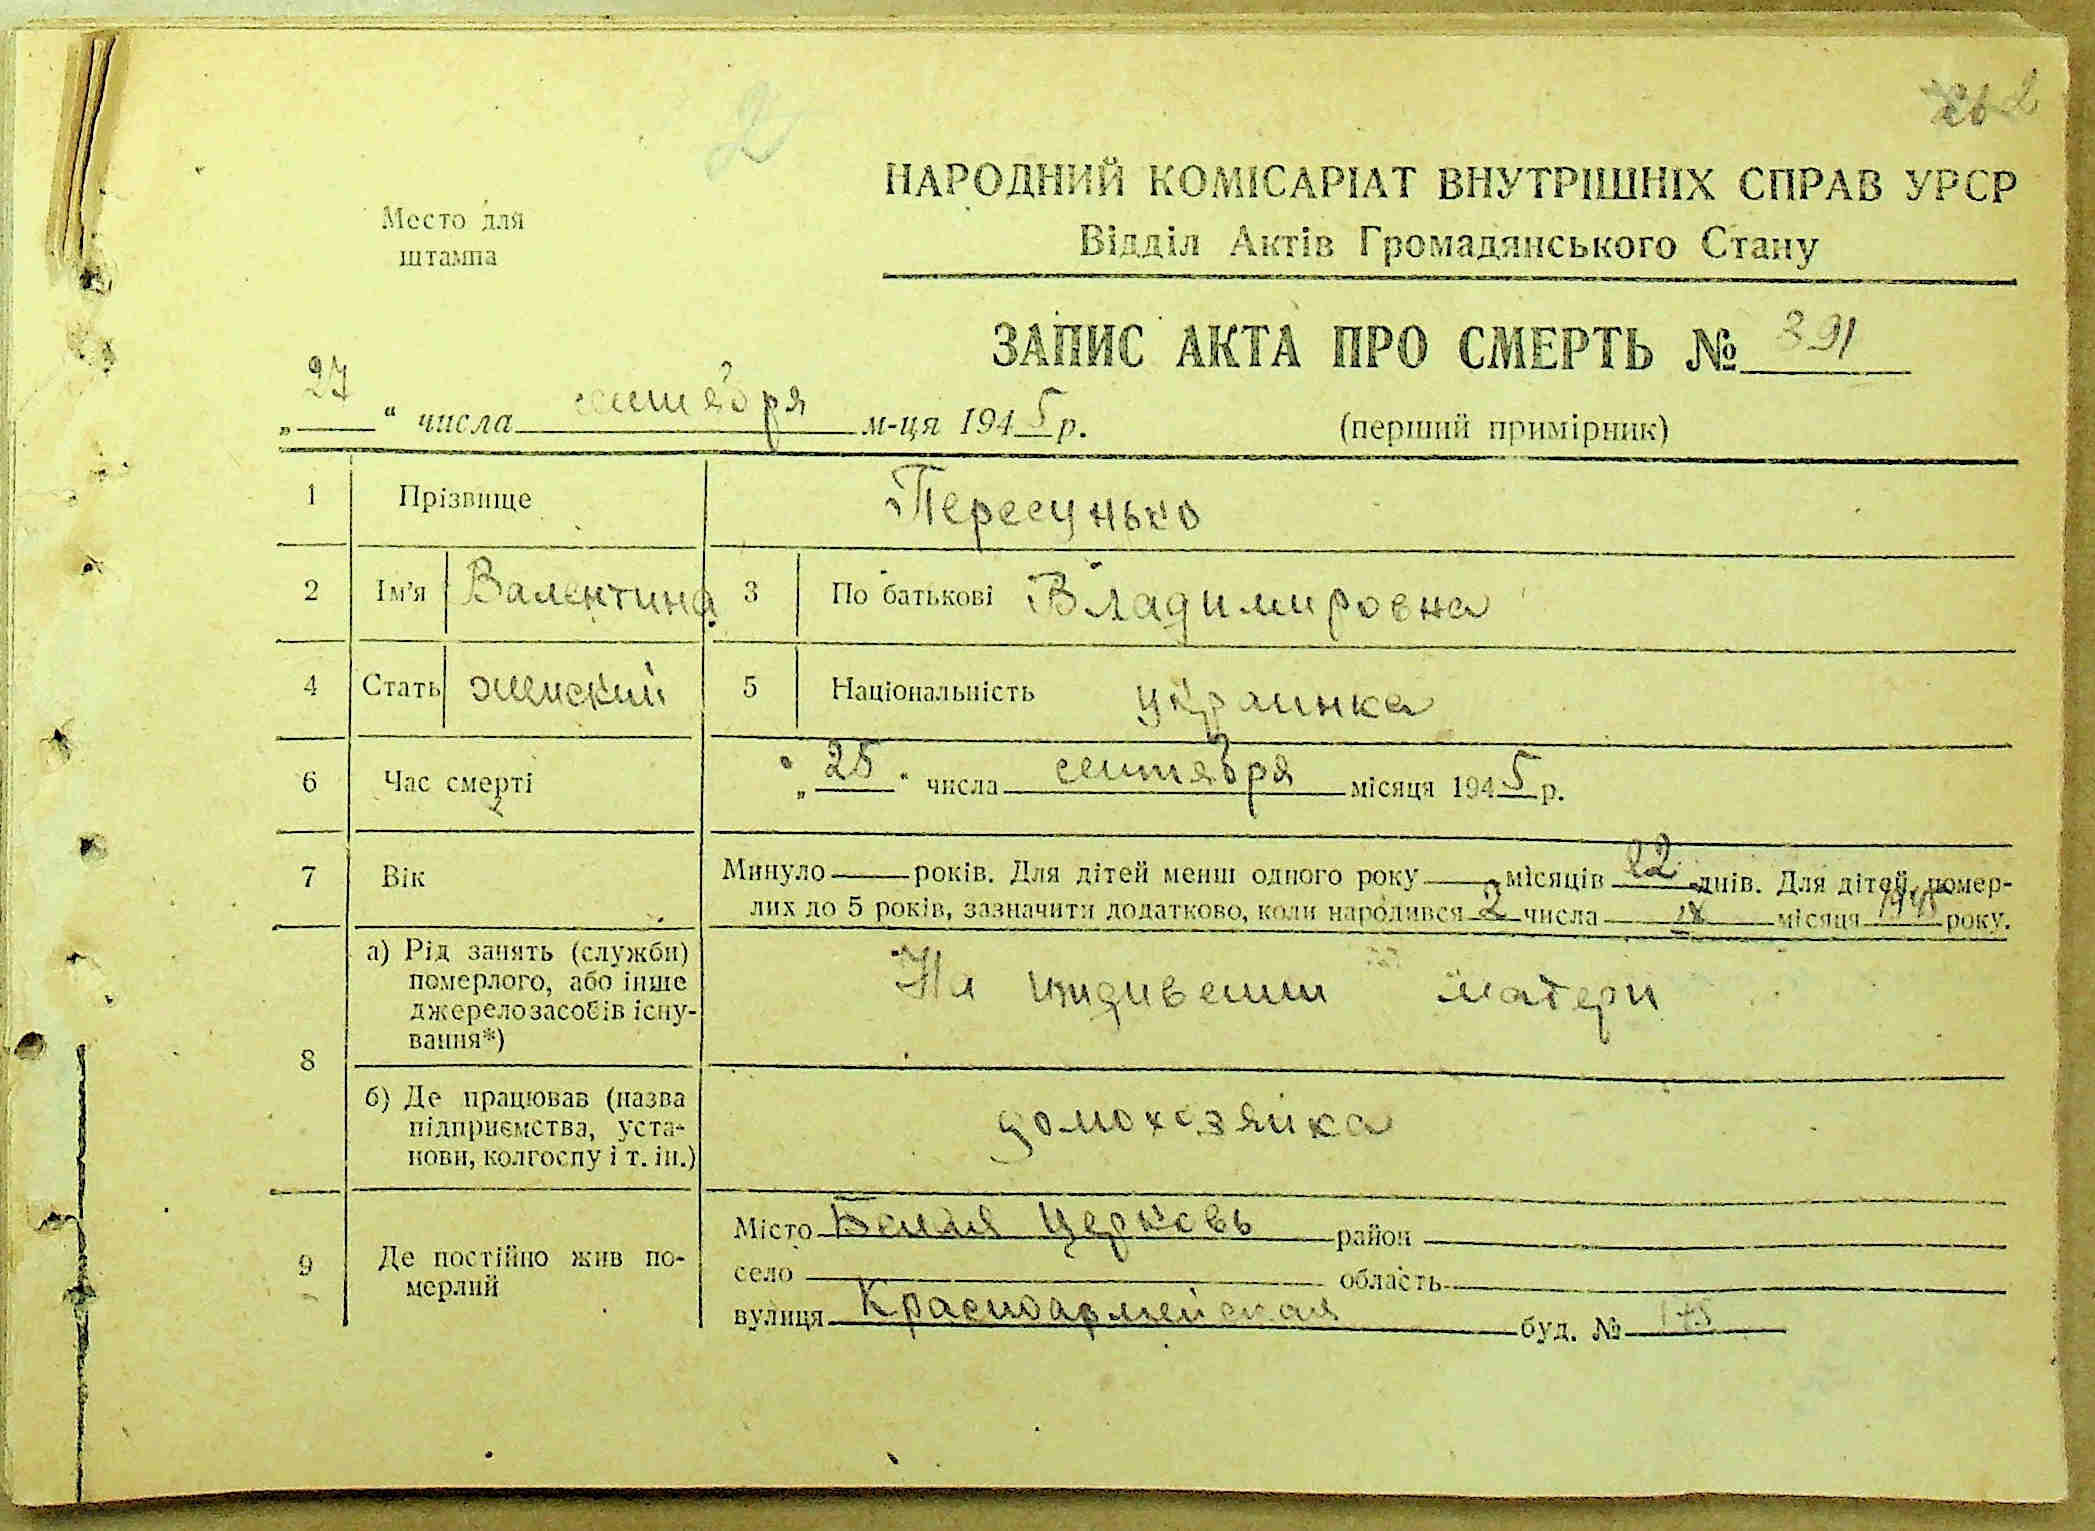 2
НАРОДНИЙ КОМІСАРІАТ ВНУТРІШНІХ СПРАВ УРСР
Відділ Актів Громадянського Стану
Место для
штампа
ЗАПИС АКТА ПРО СМЕРТЬ № 391
„27“ числа сентября м-ця 1945 р.
(перший примірник)
1 Прізвище Пересунько
2 Ім'я Валентина 3 По батькові Владимировна
4 Стать женский 5 Національність украинка
6 Час смерті „25“ числа сентября місяця 1945 р.
7 Вік Минуло — років. Для дітей менш одного року — місяців 22 днів. Для дітей, помер-
лих до 5 років, зазначити додатково, коли народився 2 числа місяця 1945 року.
8 а) Рід занять (служби)
померлого, або інше
джерело засобів існу-
вання*)
На иждивении матери
б) Де працював (назва
підприємства, уста-
нови, колгоспу і т. ін.)
домохозяйка
9 Де постійно жив по-
мерлий
Місто Белая Церковь район
село область
вулиця Красноармейская буд. № 175